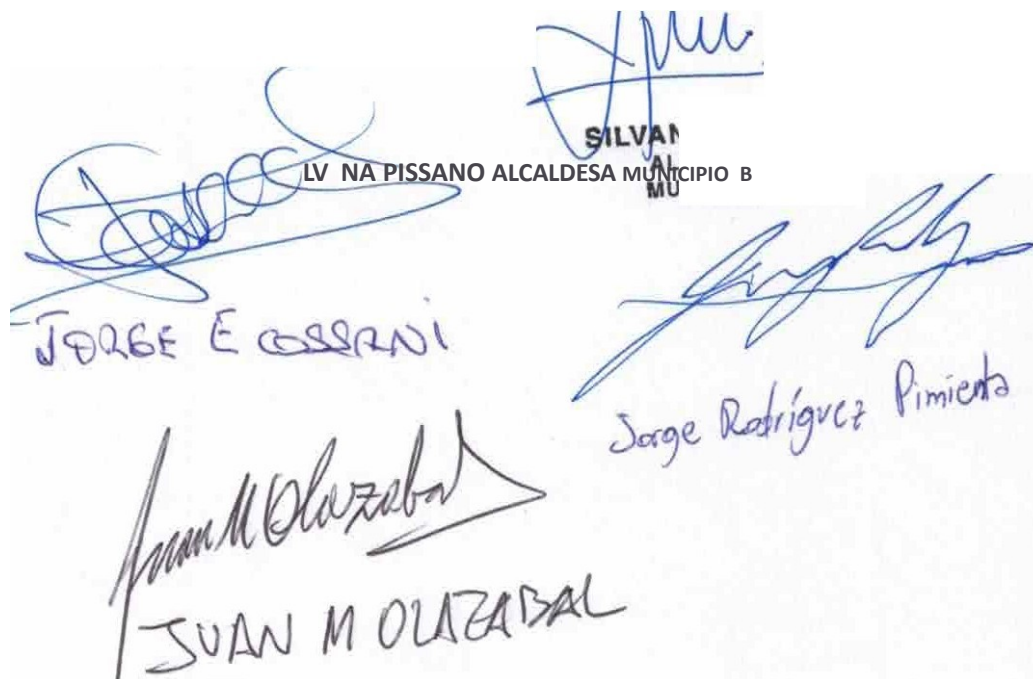 SILVAN
AL
LV NA PISSANO ALCALDESA MUNICIPIO B
MU
JORGE E COSSANI
Jorge Rodríguez Pimienta
Juan M Olazabal
JUAN M OLAZABAL